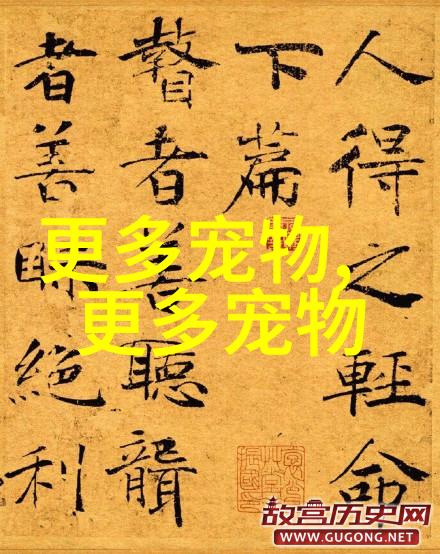 人得之輕命
下篇
瞽者善聽聾
者善絕利
更多宠物,
更多宠物
故宫历史网
WWW.GUGONG.NET